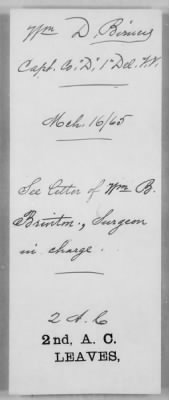 Wm D. Birney
Capt. Co. "D," 1" Del. V.V.
Mch. 16/65
See letter of Wm B.
Brinton., Surgeon
in charge.
2 A. C
2nd, A. C.
LEAVES,